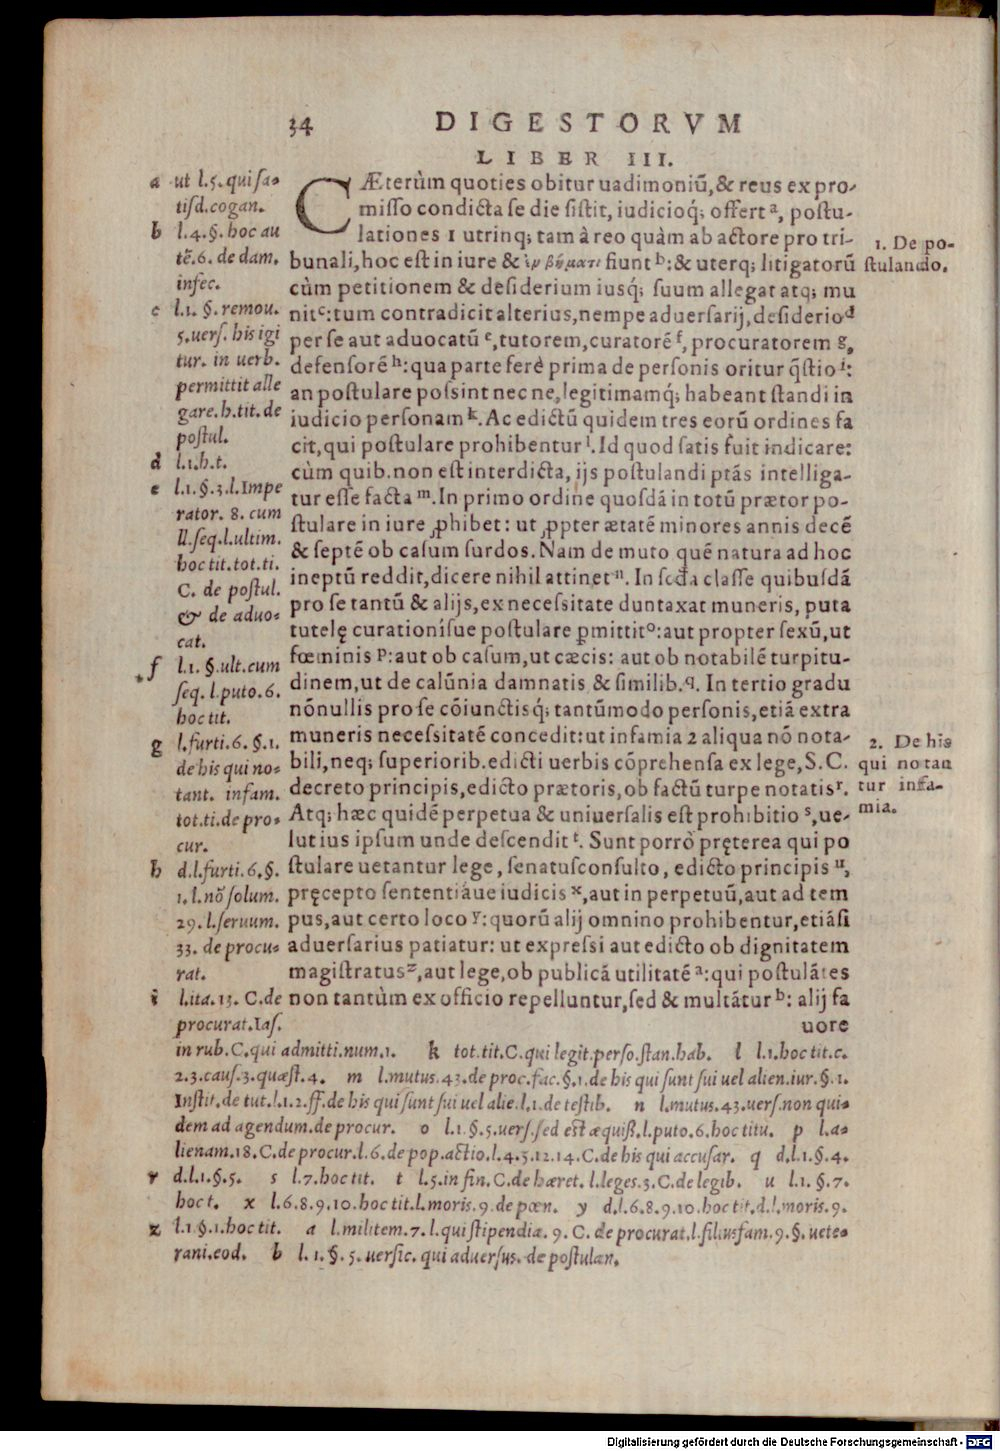 34 DIGESTORVM
LIBER III.
CÆterùm quoties obitur uadimoniũ,& reus ex pro-
misso condicta se die sistit, iudicioq́; offert ᵃ, postu-
lationes 1 utrinq; tam à reo quàm ab actore pro tri-
bunali, hoc est in iure & ἐν βήματι fiunt ᵇ: & uterq; litigatorũ
cùm petitionem & desiderium iusq́; suum allegat atq; mu
nit ᶜ: tum contradicit alterius, nempe aduersarij, desiderio ᵈ
per se aut aduocatũ ᵉ, tutorem, curatorẽ ᶠ, procuratorem g,
defensorẽ ʰ: qua parte ferè prima de personis oritur q̃stio ⁱ:
an postulare possint nec ne, legitimamq́; habeant standi in
iudicio personam ᵏ. Ac edictũ quidem tres eorũ ordines fa
cit, qui postulare prohibentur ˡ. Id quod satis fuit indicare:
cùm quib. non est interdicta, ijs postulandi ptãs intelliga-
tur esse facta ᵐ. In primo ordine quosdã in totũ prætor po-
stulare in iure ꝓhibet: ut ꝓpter ætatẽ minores annis decẽ
& septẽ ob casum surdos. Nam de muto quẽ natura ad hoc
ineptũ reddit, dicere nihil attinet ⁿ. In scd̃a classe quibusdã
pro se tantũ & alijs, ex necessitate duntaxat muneris, puta
tutelę curationísue postulare ꝑmittit ᵒ: aut propter sexũ, ut
fœminis ᵖ: aut ob casum, ut cæcis: aut ob notabilẽ turpitu-
dinem, ut de calũnia damnatis & similib. q. In tertio gradu
nõnullis pro se cõiunctisq́; tantũmodo personis, etiã extra
muneris necessitatẽ concedit: ut infamia 2 aliqua nõ nota-
bili, neq; superiorib. edicti uerbis cõprehensa ex lege, S.C.
decreto principis, edicto prætoris, ob factũ turpe notatis ʳ.
Atq; hæc quidẽ perpetua & uniuersalis est prohibitio ˢ, ue-
lut ius ipsum unde descendit ᵗ. Sunt porrò pręterea qui po
stulare uetantur lege, senatusconsulto, edicto principis ᵘ,
pręcepto sententiáue iudicis ˣ, aut in perpetuũ, aut ad tem
pus, aut certo loco ʸ: quorũ alij omnino prohibentur, etiãsi
aduersarius patiatur: ut expressi aut edicto ob dignitatem
magistratus ᶻ, aut lege, ob publicã utilitatẽ ᵃ: qui postulãtes
non tantùm ex officio repelluntur, sed & multãtur ᵇ: alij fa
uore
a ut l.5. qui sa-
tisd. cogan.
b l.4.§. hoc au
tẽ.6. de dam.
infec.
c l.1. §. remou.
5. uers. his igi
tur. in uerb.
permittit alle
gare. h. tit. de
postul.
d l.1.h.t.
e l.1.§.3.l.Impe
rator. 8. cum
ll.seq.l.ultim.
hoc tit. tot. ti.
C. de postul.
& de aduo-
cat.
f l.1. §. ult. cum
seq. l. puto. 6.
hoc tit.
g l. furti. 6. §. 1.
de his qui no-
tant. infam.
tot. ti. de pro-
cur.
h d.l. furti. 6. §.
1. l. nõ solum.
29. l. seruum.
33. de procu-
rat.
i l. ita. 13. C. de
procurat. Ias.
1. De po-
stulando.
2. De his
qui notan
tur infa-
mia.
in rub. C. qui admitti. num. 1. k tot. tit. C. qui legit. perso. stan. hab. l l.1. hoc tit. c.
2.3. caus. 3. quæst. 4. m l. mutus. 43. de proc. fac. §. 1. de his qui sunt sui uel alien. iur. §. 1.
Instit. de tut. l.1.2. ff. de his qui sunt sui uel alie. l.1. de testib. n l. mutus. 43. uers. non qui-
dem ad agendum. de procur. o l.1.§.5. uers. sed est æquiß. l. puto. 6. hoc titu. p l. a-
lienam. 18. C. de procur. l.6. de pop. actio. l.4.5.12.14. C. de his qui accusar. q d.l.1.§.4.
r d.l.1.§.5. s l.7. hoc tit. t l.5. in fin. C. de hæret. l. leges. 3. C. de legib. u l.1. §.7.
hoc t. x l.6.8.9.10. hoc tit. l. moris. 9. de pœn. y d.l.6.8.9.10. hoc tit. d.l. moris. 9.
z l.1 §.1. hoc tit. a l. militem. 7. l. qui stipendia. 9. C. de procurat. l. filiusfam. 9. §. uete-
rani. eod. b l. 1. §. 5. uersic. qui aduersus. de postulan.
Digitalisierung gefördert durch die Deutsche Forschungsgemeinschaft - DFG